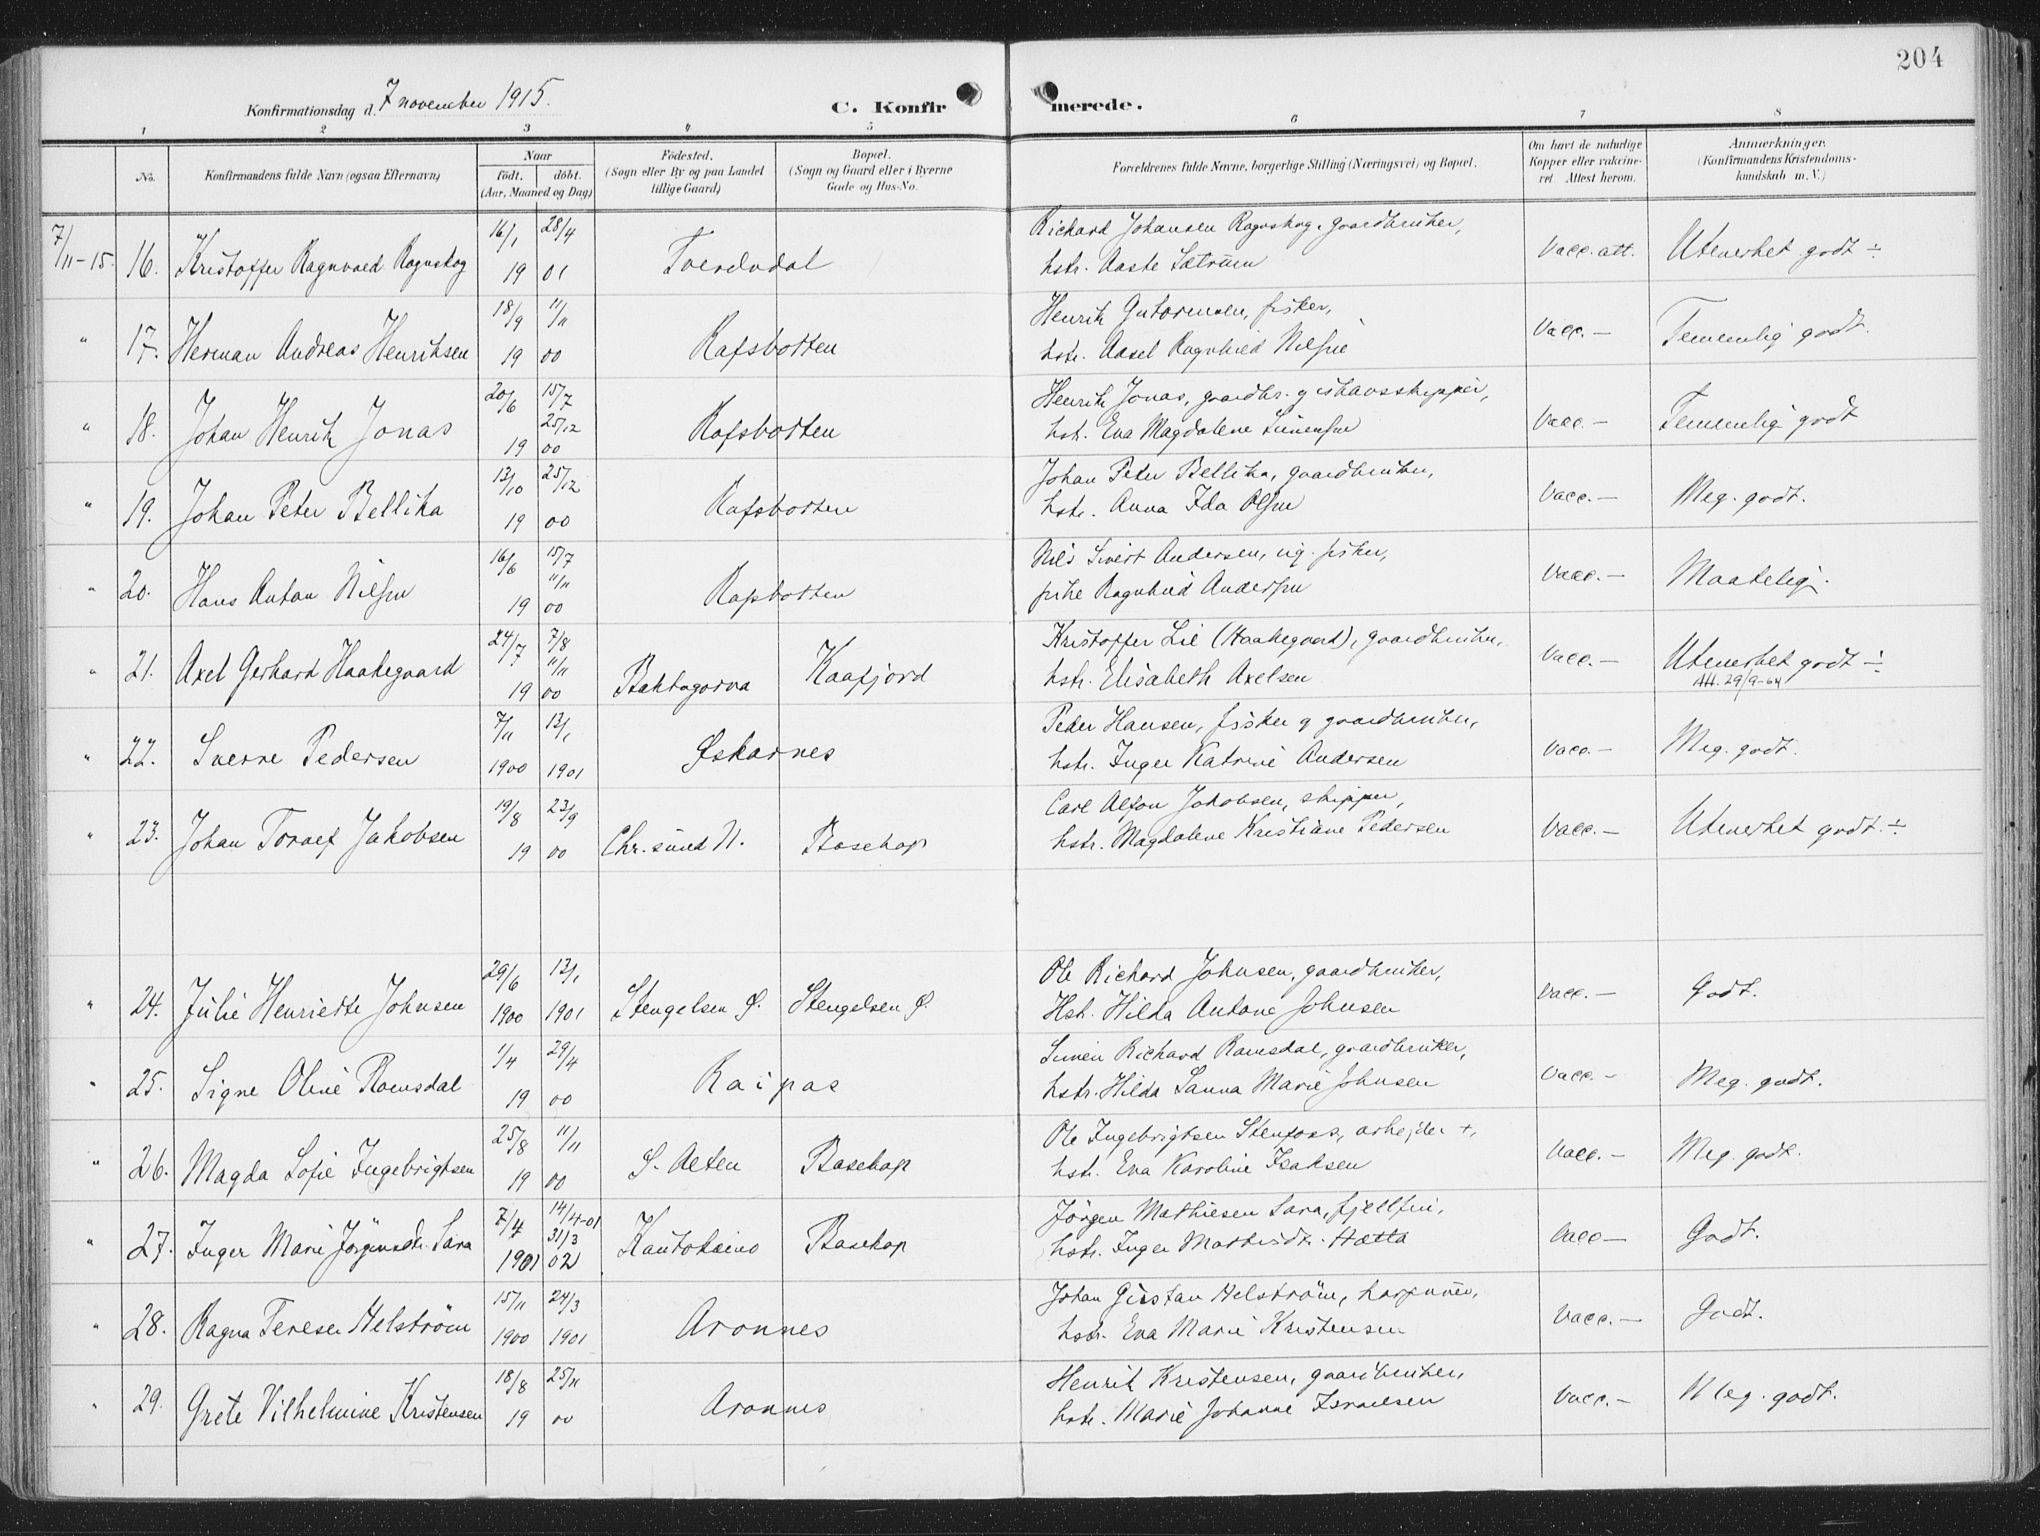 204
Konfirmationsdag d. 7 november 1915.
C. Konfirmerede.
1 2 3 4 5 6 7 8
No.
Konfirmandens fulde Navn (ogsaa Efternavn)
Naar
født. døbt.
(Aar, Maaned og Dag)
Fødested.
(Sogn eller By og paa Landet
tillige Gaard)
Bopæl.
(Sogn og Gaard eller i Byerne
Gade og Hus-No.
Forældrenes fulde Navne, borgerlige Stilling (Næringsvei) og Bopæl.
Om havt de naturlige
Kopper eller vakcine-
ret. Attest herom.
Anmærkninger.
(Konfirmandens Kristendoms-
kundskab m. V.)
7/11-15. 16. Kristoffer Ragnvald Rognskog 16/1 28/4 19 01 Tverdvdal
Richard Johansen Rognskog, gaardbruker,
hstr. Aaste Sætrum
Vacc. att. Utmerket godt ÷
" 17. Herman Andreas Henriksen 18/9 11/11 19 00 Rafsbotten
Henrik Gutormsen, fisker,
hstr. Aasel Ragnhild Nilsne
Vacc. — Temmelig godt.
" 18. Johan Henrik Jonas 20/6 15/7 25/12 19 00 Rafsbotten
Henrik Jonas, gaardbr. g ishavsskipper,
hstr. Eva Magdalene Simensen
Vacc. — Temmelig godt
" 19. Johan Peter Bellika 13/10 25/12 19 00 Rafsbotten
Johan Peter Bellika, gaardbruker,
hstr. Anna Ida Olsen
Vacc. — Meg. godt.
" 20. Hans Anton Nilsen 16/6 15/7 11/11 19 00 Rafsbotten
Nils Sivert Andersen, ug. fisker,
pike Ragnhild Andersen
Vacc. — Maatelig.
" 21. Axel Gerhard Haakegaard 24/7 7/8 11/11 19 00 Baktagorva Kaafjord
Kristoffer Lie (Haakegaard), gaardbruker,
hstr. Elisabeth Axelsen
Vacc. — Utmerket godt ÷
Att. 29/9-64
" 22. Sverre Pedersen 7/11 13/1 1900 1901 Øskarnes
Peder Hansen, fisker g gaardbruker,
hstr. Inger Katrine Andersen
Vacc. — Meg. godt.
" 23. Johan Toralf Jakobsen 19/8 23/9 19 00 Chr.sund N. Bosekop
Carl Alfon Jakobsen, skipper,
hstr. Magdalene Kristiane Pedersen
Vacc. — Utmerket godt. ÷
" 24. Julie Henriette Johnsen 29/6 13/1 1900 1901 Stengelsen Ø. Stengelsen Ø.
Ole Richard Johnsen, gaardbruker,
Hst. Hilda Antone Johnsen
Vacc. — Godt.
" 25. Signe Oline Romsdal 1/4 29/4 19 00 Raipas
Simen Richard Romsdal, gaardbruker,
hstr. Hilda Sanna Marie Johnsen
Vacc. — Meg. godt.
" 26. Magda Sofie Ingebrigtsen 25/8 11/11 19 00 S. Alten Bosekop
Ole Ingebrigtsen Stenfoss, arbejder +,
hst. Eva Karoline Isaksen
Vacc. — Meg. godt.
" 27. Inger Marie Jörgensdt. Sara 7/4 14/4-01 31/3 1901 02 Kautokeino Bosekop
Jörgen Mathiesen Sara, fjellfin,
hstr. Inger Mathisdtr. Hætta
Vacc — Godt.
" 28. Ragna Terese Helström 15/11 24/3 1900 1901 Aronnes
Johan Gustav Helström, harpuner,
hstr. Eva Marie Kristensen
Vacc. — Godt.
" 29. Grete Vilhelmine Kristensen 18/8 25/11 19 00 Aronnes
Henrik Kristensen, gaardbruker,
hstr. Marie Johanne Israelsen
Vacc. — Meg. godt.